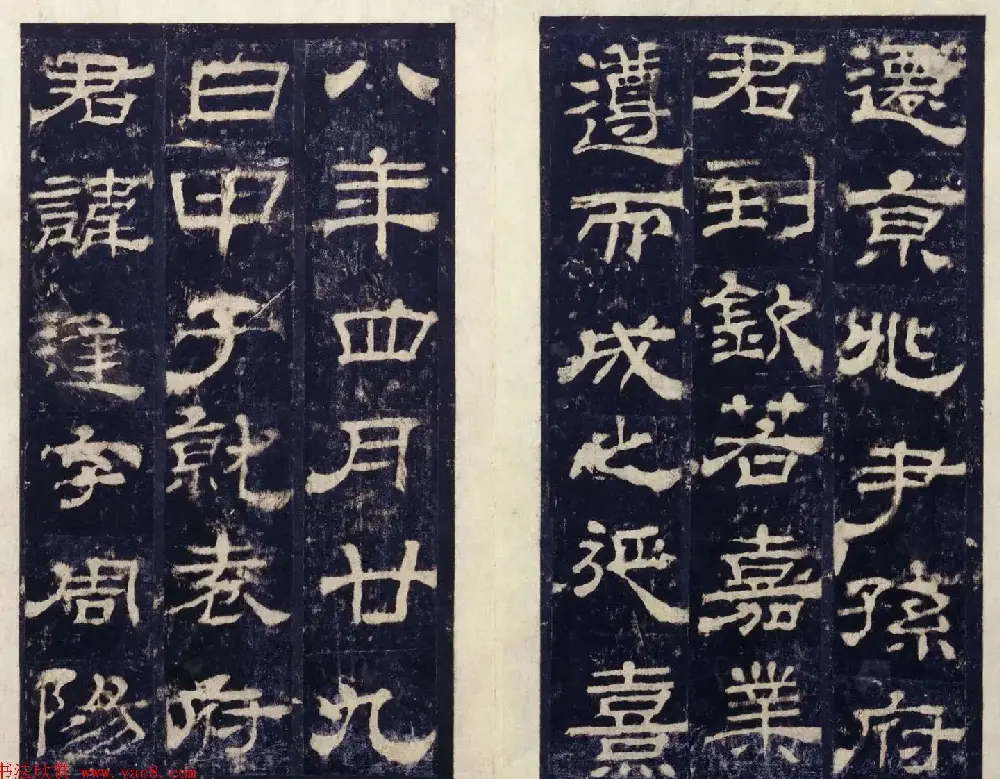 遷京兆尹孫府
君到欽若嘉業
遵而成之延熹
八年四月廿九
日甲子就袁府
君諱逢字周陽
www.yac8.com